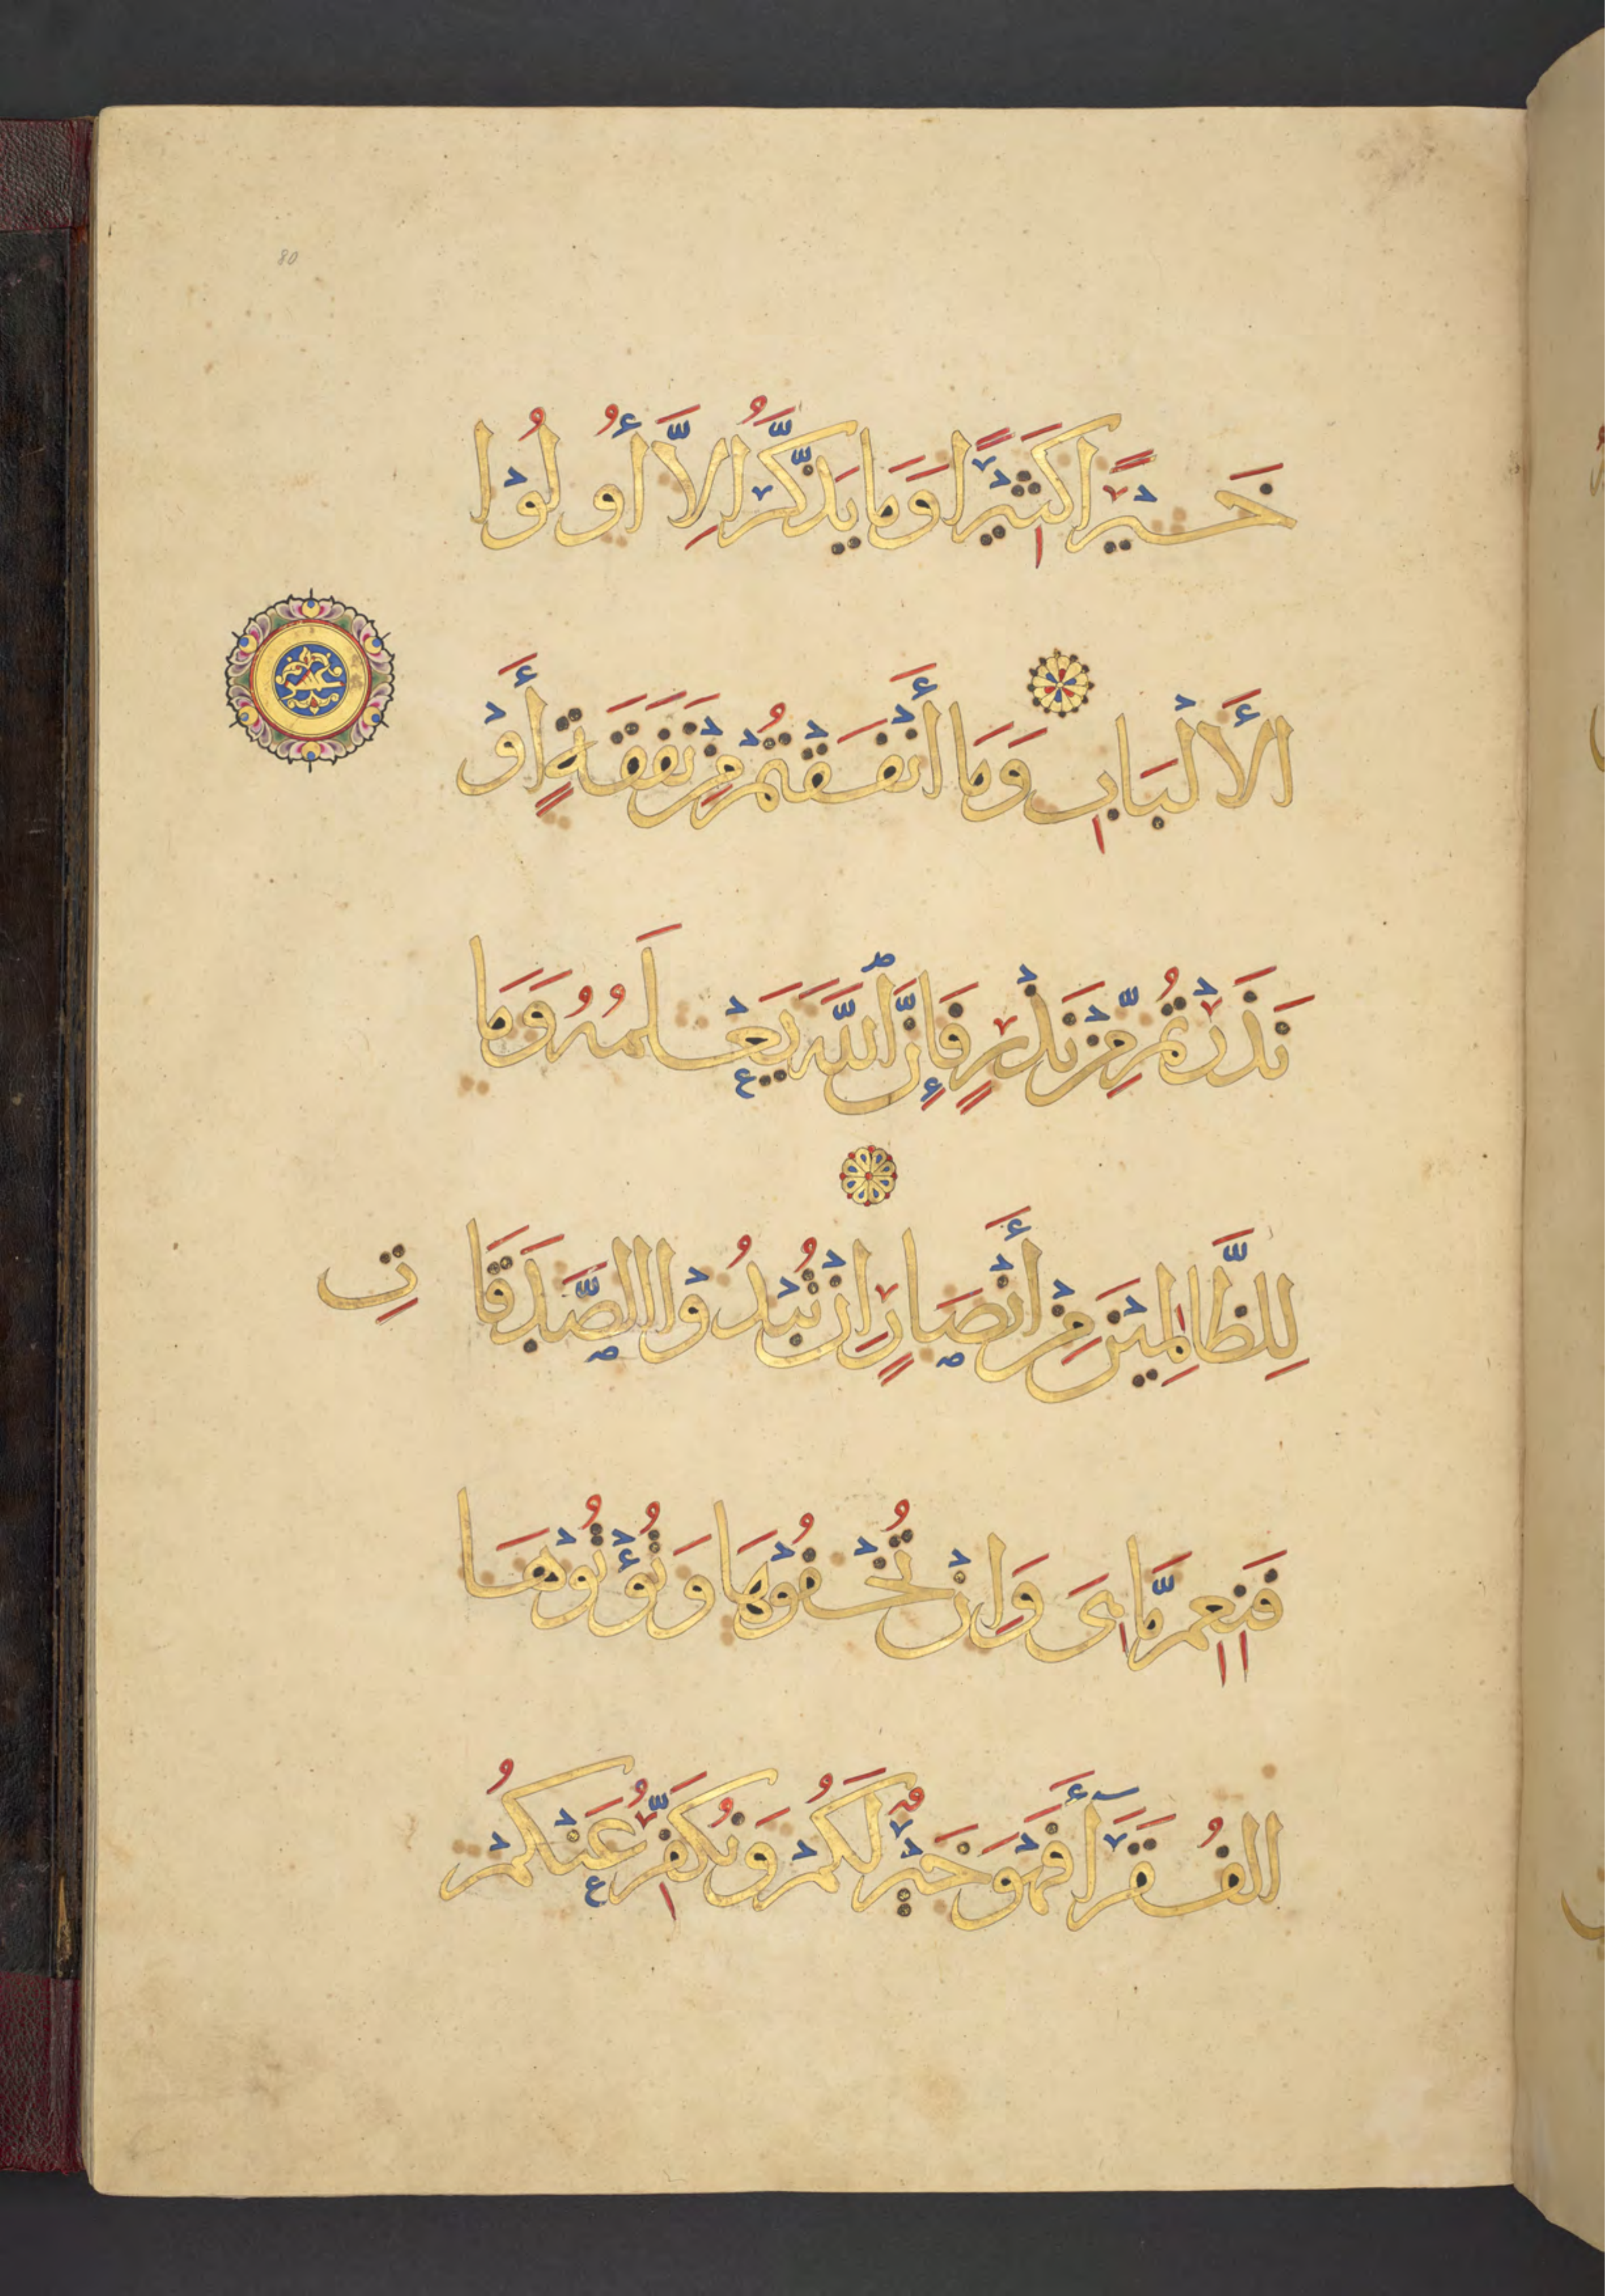 80
خَيْرًا كَثِيْرًا وَمَا يَذَّكَّرُ اِلَّا أُولُوْا
الأَلْبَابِ وَمَا أَنْفَقْتُمْ مِنْ نَفَقَةٍ أَوْ
نَذَرْتُمْ مِّنْ نَذْرٍ فَإِنَّ اللَّهَ يَعْلَمُهُ وَمَا
لِلظَّالِمِيْنَ مِنْ أَنْصَارٍ اِنْ تُبْدُوْا الصَّدَقَاتِ
فَنِعِمَّا هِىَ وَاِنْ تُخْفُوْهَا وَتُؤْتُوْهَا
الفُقَرَآءَ فَهْوَ خَيْرٌ لَكُمْ وَنُكَفِّرُ عَنْكُمْ